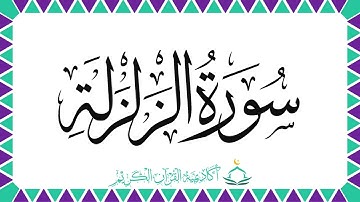 سُورَةُ الزَّلْزَلَةِ
أكاديمية القرآن الكريم